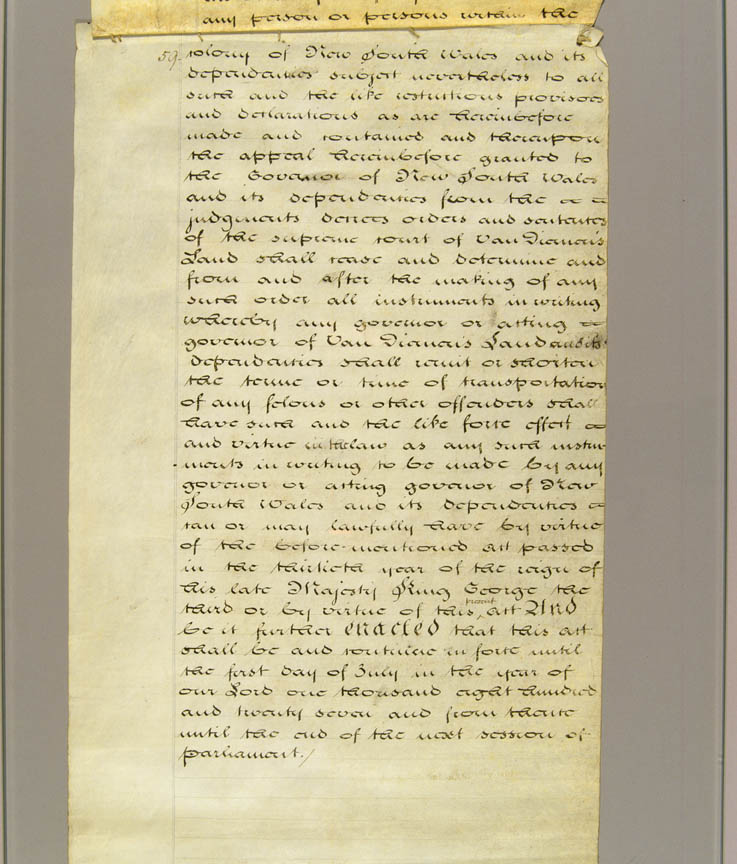 any person or persons within the
59. colony of New South Wales and its
dependencies subject nevertheless to all
such and the like restrictions provisoes
and declarations as are hereinbefore
made and contained and thereupon
the appeal hereinbefore granted to
the Govenor of New South Wales
and its dependencies from the
judgments decrees orders and sentences
of the supreme court of Van Diemen's
Land shall cease and determine and
from and after the making of any
such order all instruments in writing
whereby any govenor or acting
govenor of Van Diemen's Land and its
dependencies shall remit or shorten
the terme or time of transportation
of any felons or other offenders shall
have such and the like force effect
and virtue in the law as any such instru
ments in writing to be made by any
govenor or acting govenor of New
South Wales and its dependencies
can or may lawfully have by virtue
of the before mentioned act passed
in the thirtieth year of the reign of
his late Majesty King George the
third or by virtue of this present act And
be it further enacted that this act
shall be and continue in force until
the first day of July in the year of
our Lord one thousand eight hundred
and twenty seven and from thence
until the end of the next session of
parliament./